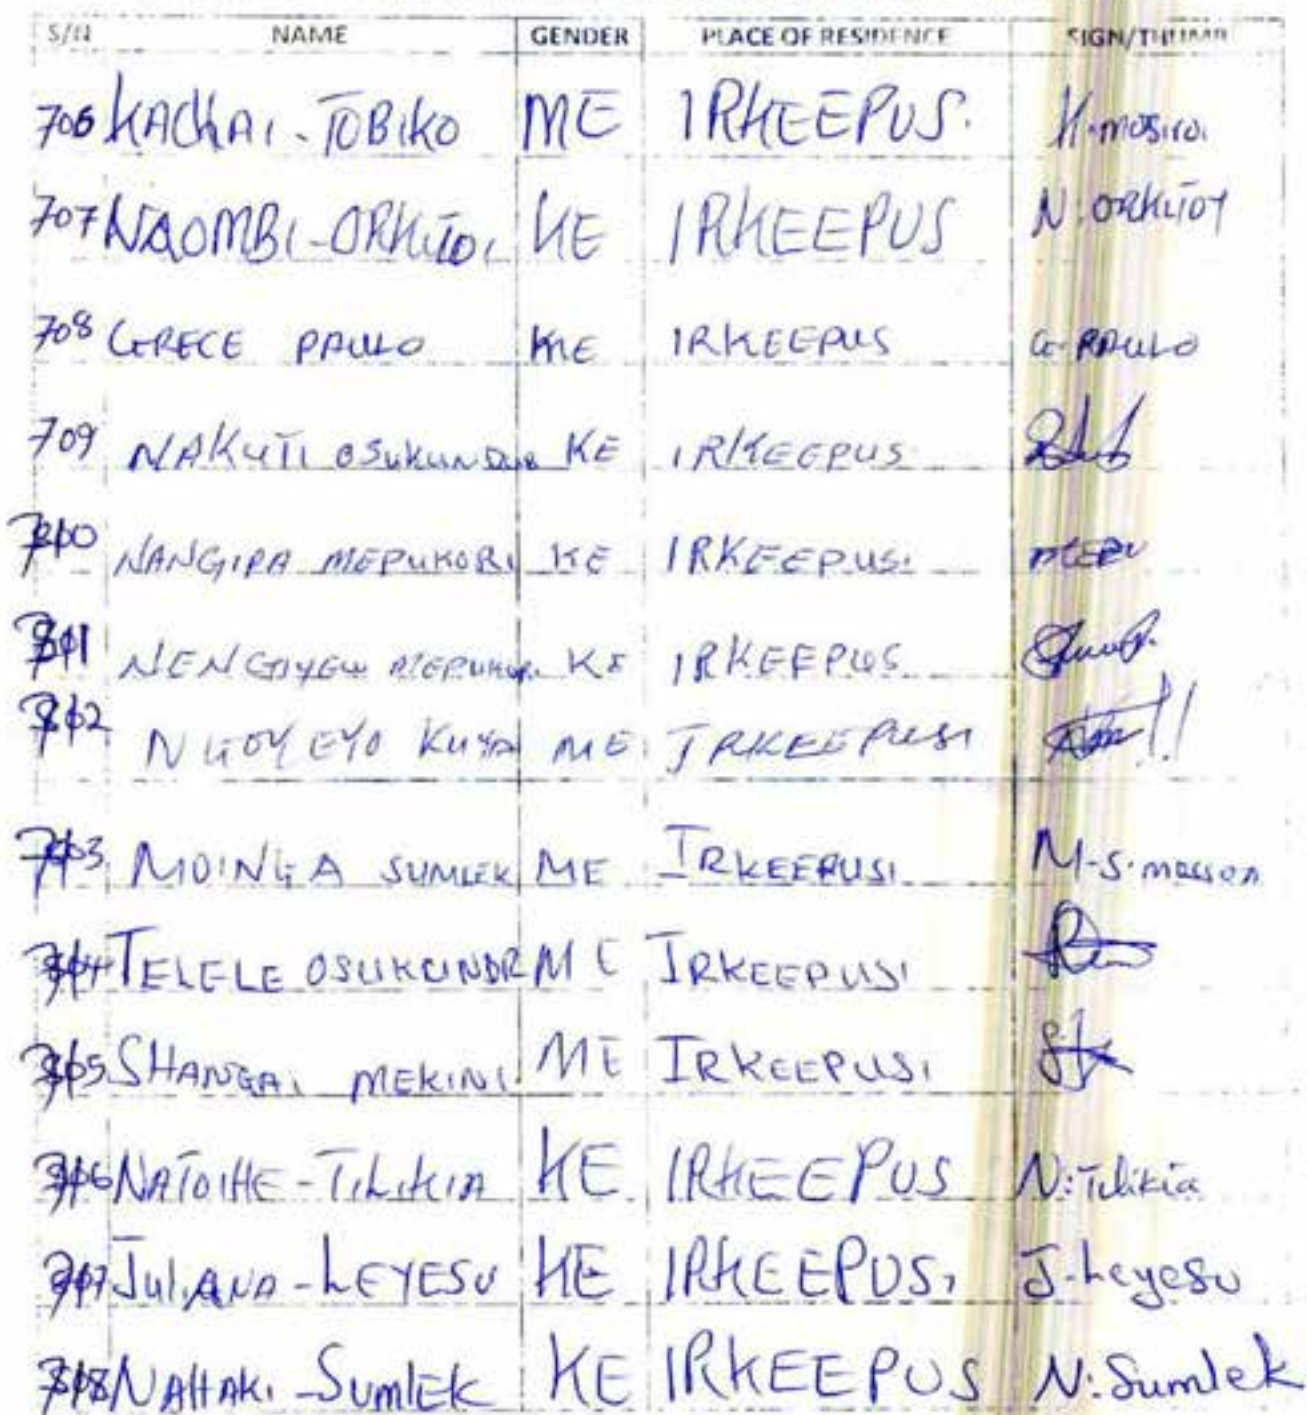 S/N NAME GENDER PLACE OF RESIDENCE SIGN/THUMB
706 KACKAI - TOBIKO ME IRKEEPUS. K. mosiroi
707 NAOMBI - ORKITOI KE IRKEEPUS N. ORKITOY
708 GRECE PAULO KE IRKEEPUS G. PAULO
709 NAKUTI OSUKUNDUR KE IRKEEPUS
710 NANGIPA MEPUKORI KE IRKEEPUSI MEPU
711 NENGOYEW MEPUKORI KE IRKEEPUS
712 NGOYEYO KUYA ME IRKEEPUSI
713 MOINGA SUMLEK ME IRKEEPUSI M-S.
714 TELELE OSUKUNDR ME IRKEEPUSI
715 SHANGAI MEKINI ME IRKEEPUSI
716 NATOIHE - TILIKIA KE IRKEEPUS N: Tilikia
717 JULIANA - LEYESU KE IRKEEPUSI J-Leyesu
718 NAHAKI - SUMLEK KE IRKEEPUS N: Sumlek